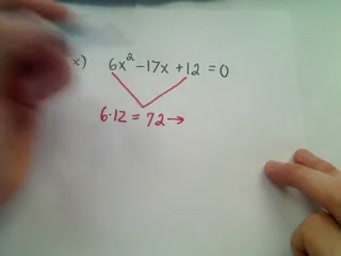 x) 6x² -17x +12 = 0
6·12 = 72→